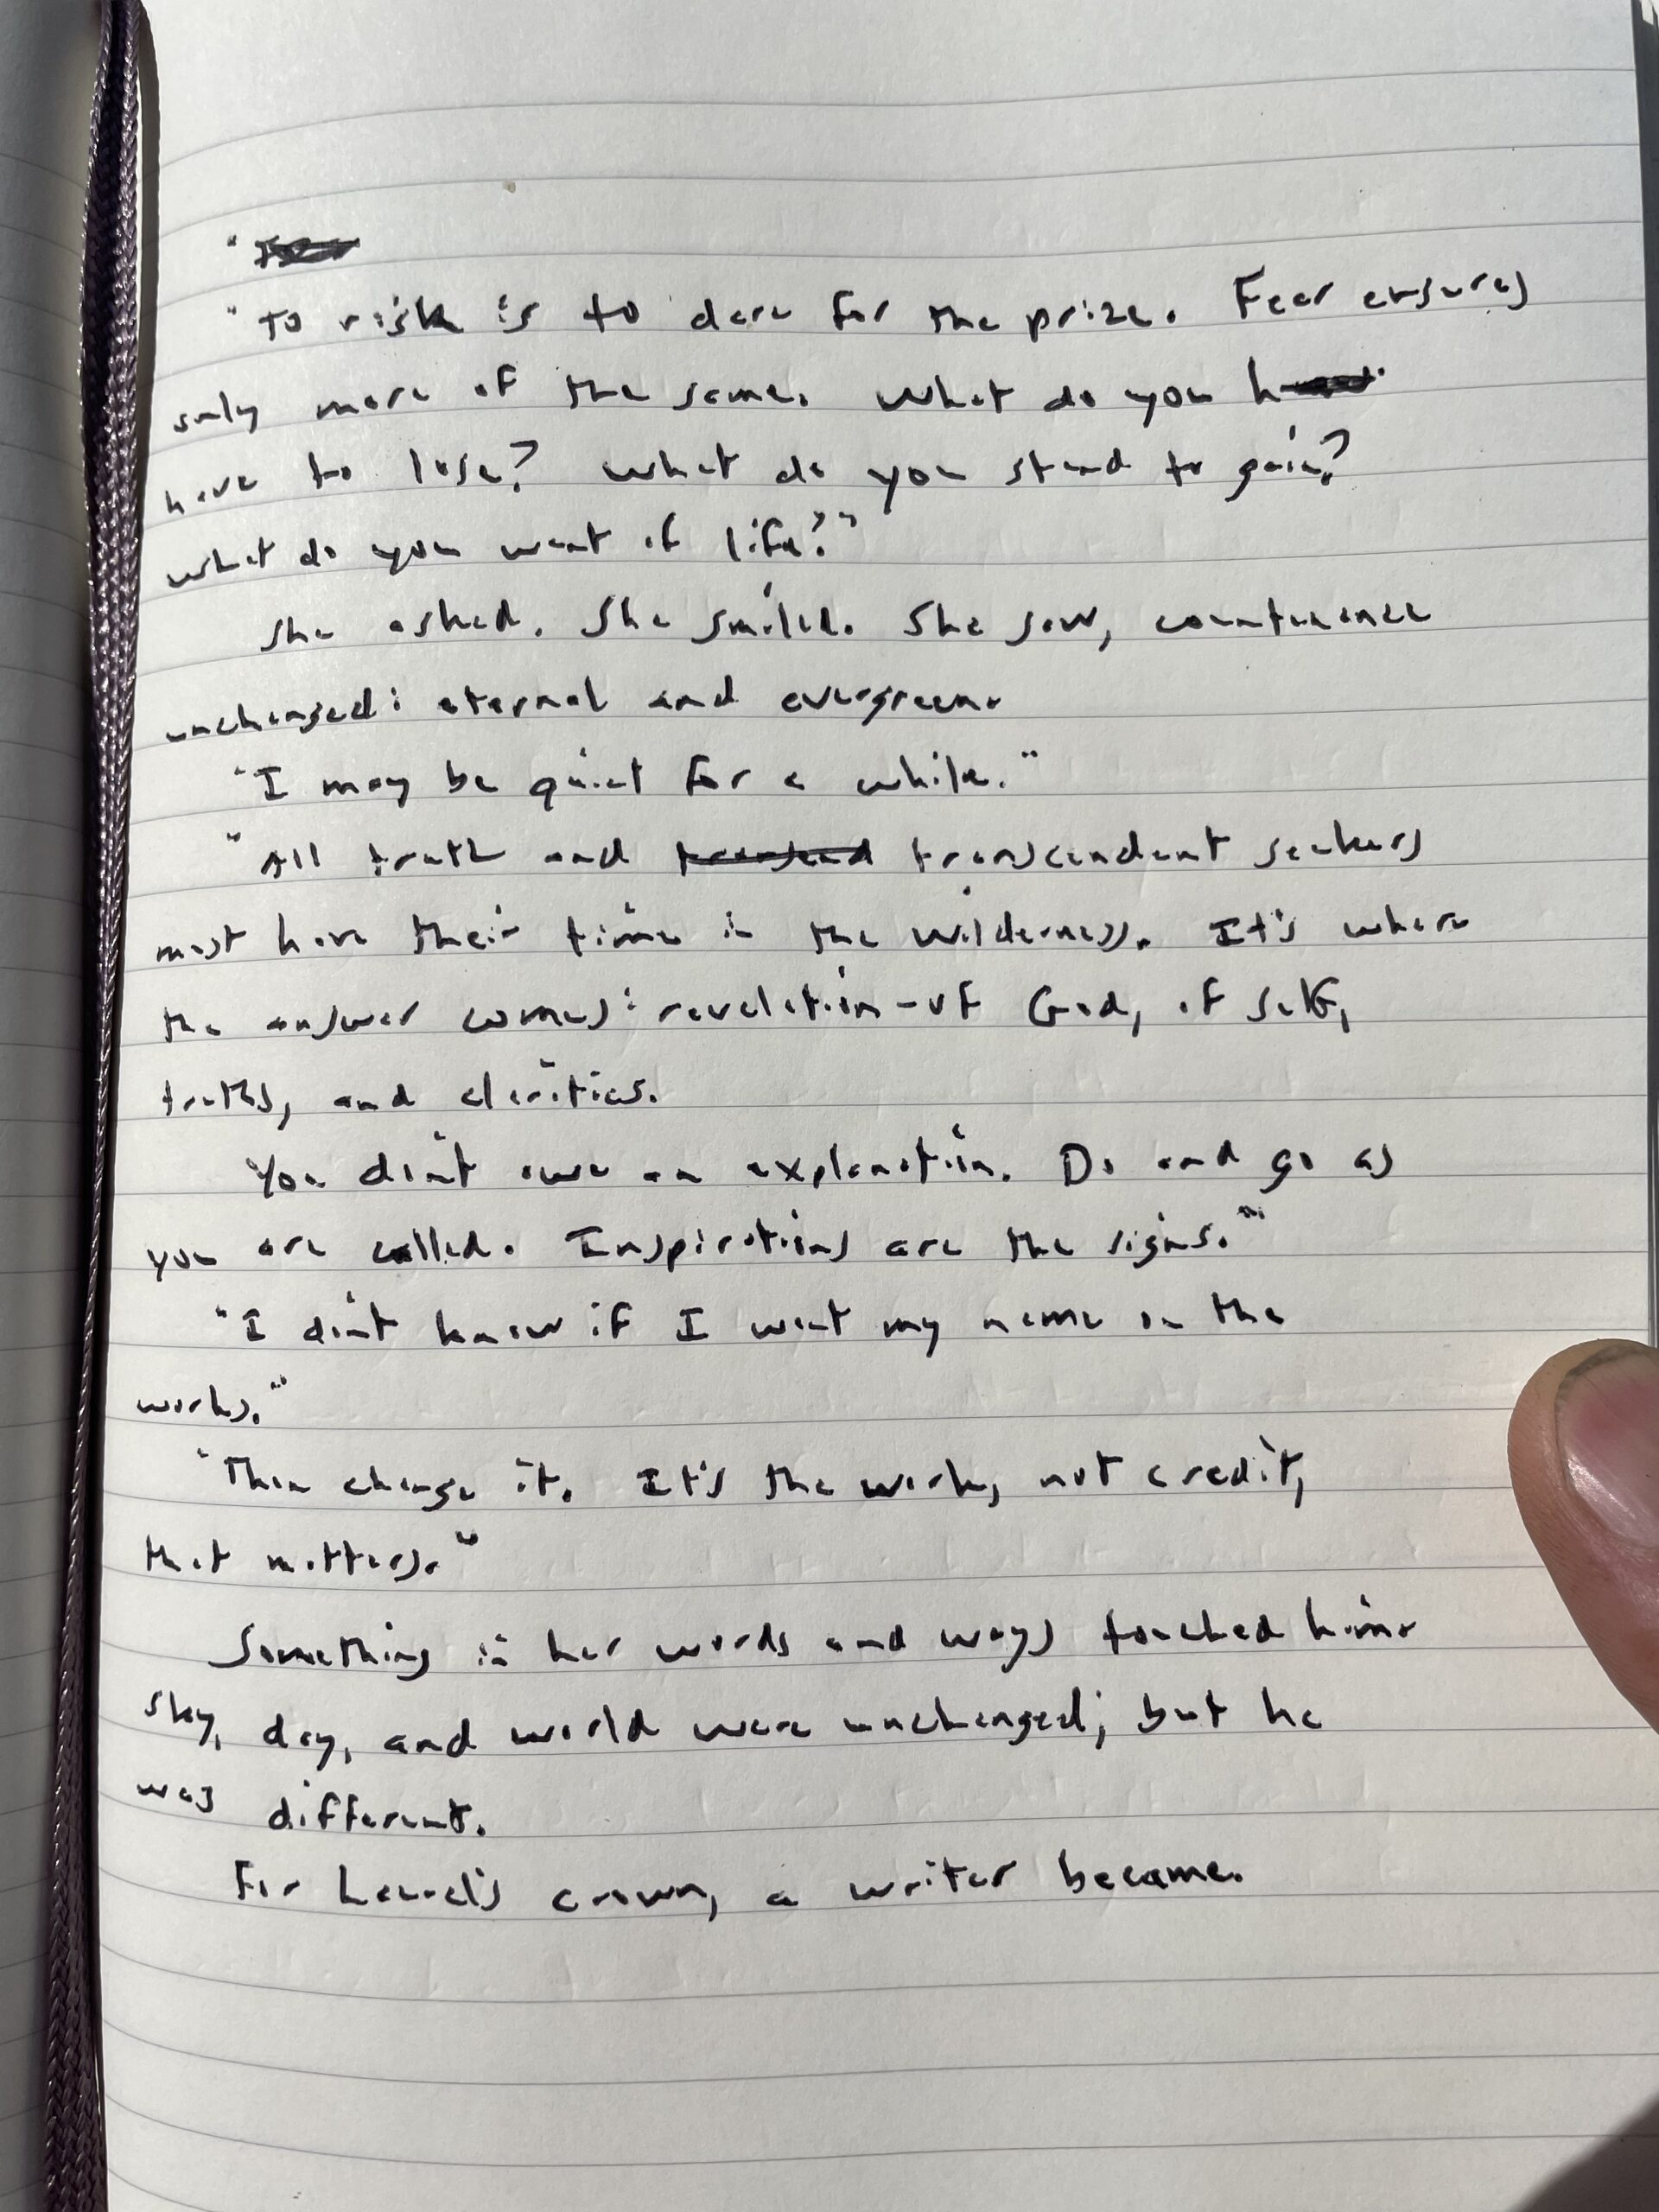 "To risk is to dare for the prize. Fear ensures
only more of the same. What do you h
have to lose? What do you stand to gain?
What do you want of life?"
She asked. She smiled. She saw, countenance
unchanged: eternal and evergreen.
"I may be quiet for a while."
"All truth and transcend transcendent seekers
must have their time in the wilderness. It's where
the answer comes: revelation - of God, of self,
truths, and clarities.
You don't owe an explanation. Do and go as
you are called. Inspirations are the signs."
"I don't know if I want my name on the
works."
"Then change it. It's the work, not credit,
that matters."
Something in her words and ways touched him.
Sky, day, and world were unchanged; but he
was different.
For laurel's crown, a writer became.